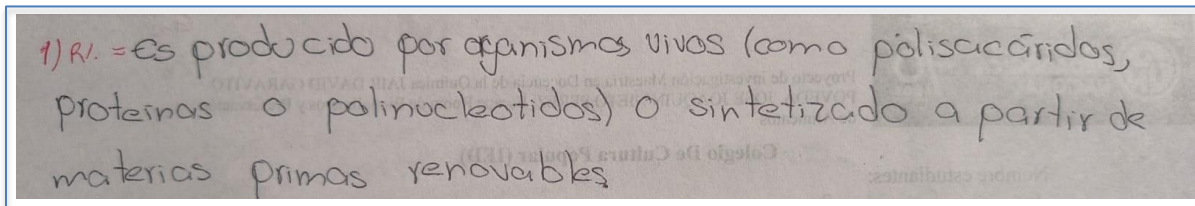 1) R/. = Es producido por organismos vivos (como polisacáridos,
proteinas o polinucleotidos) o sintetizado a partir de
materias primas renovables